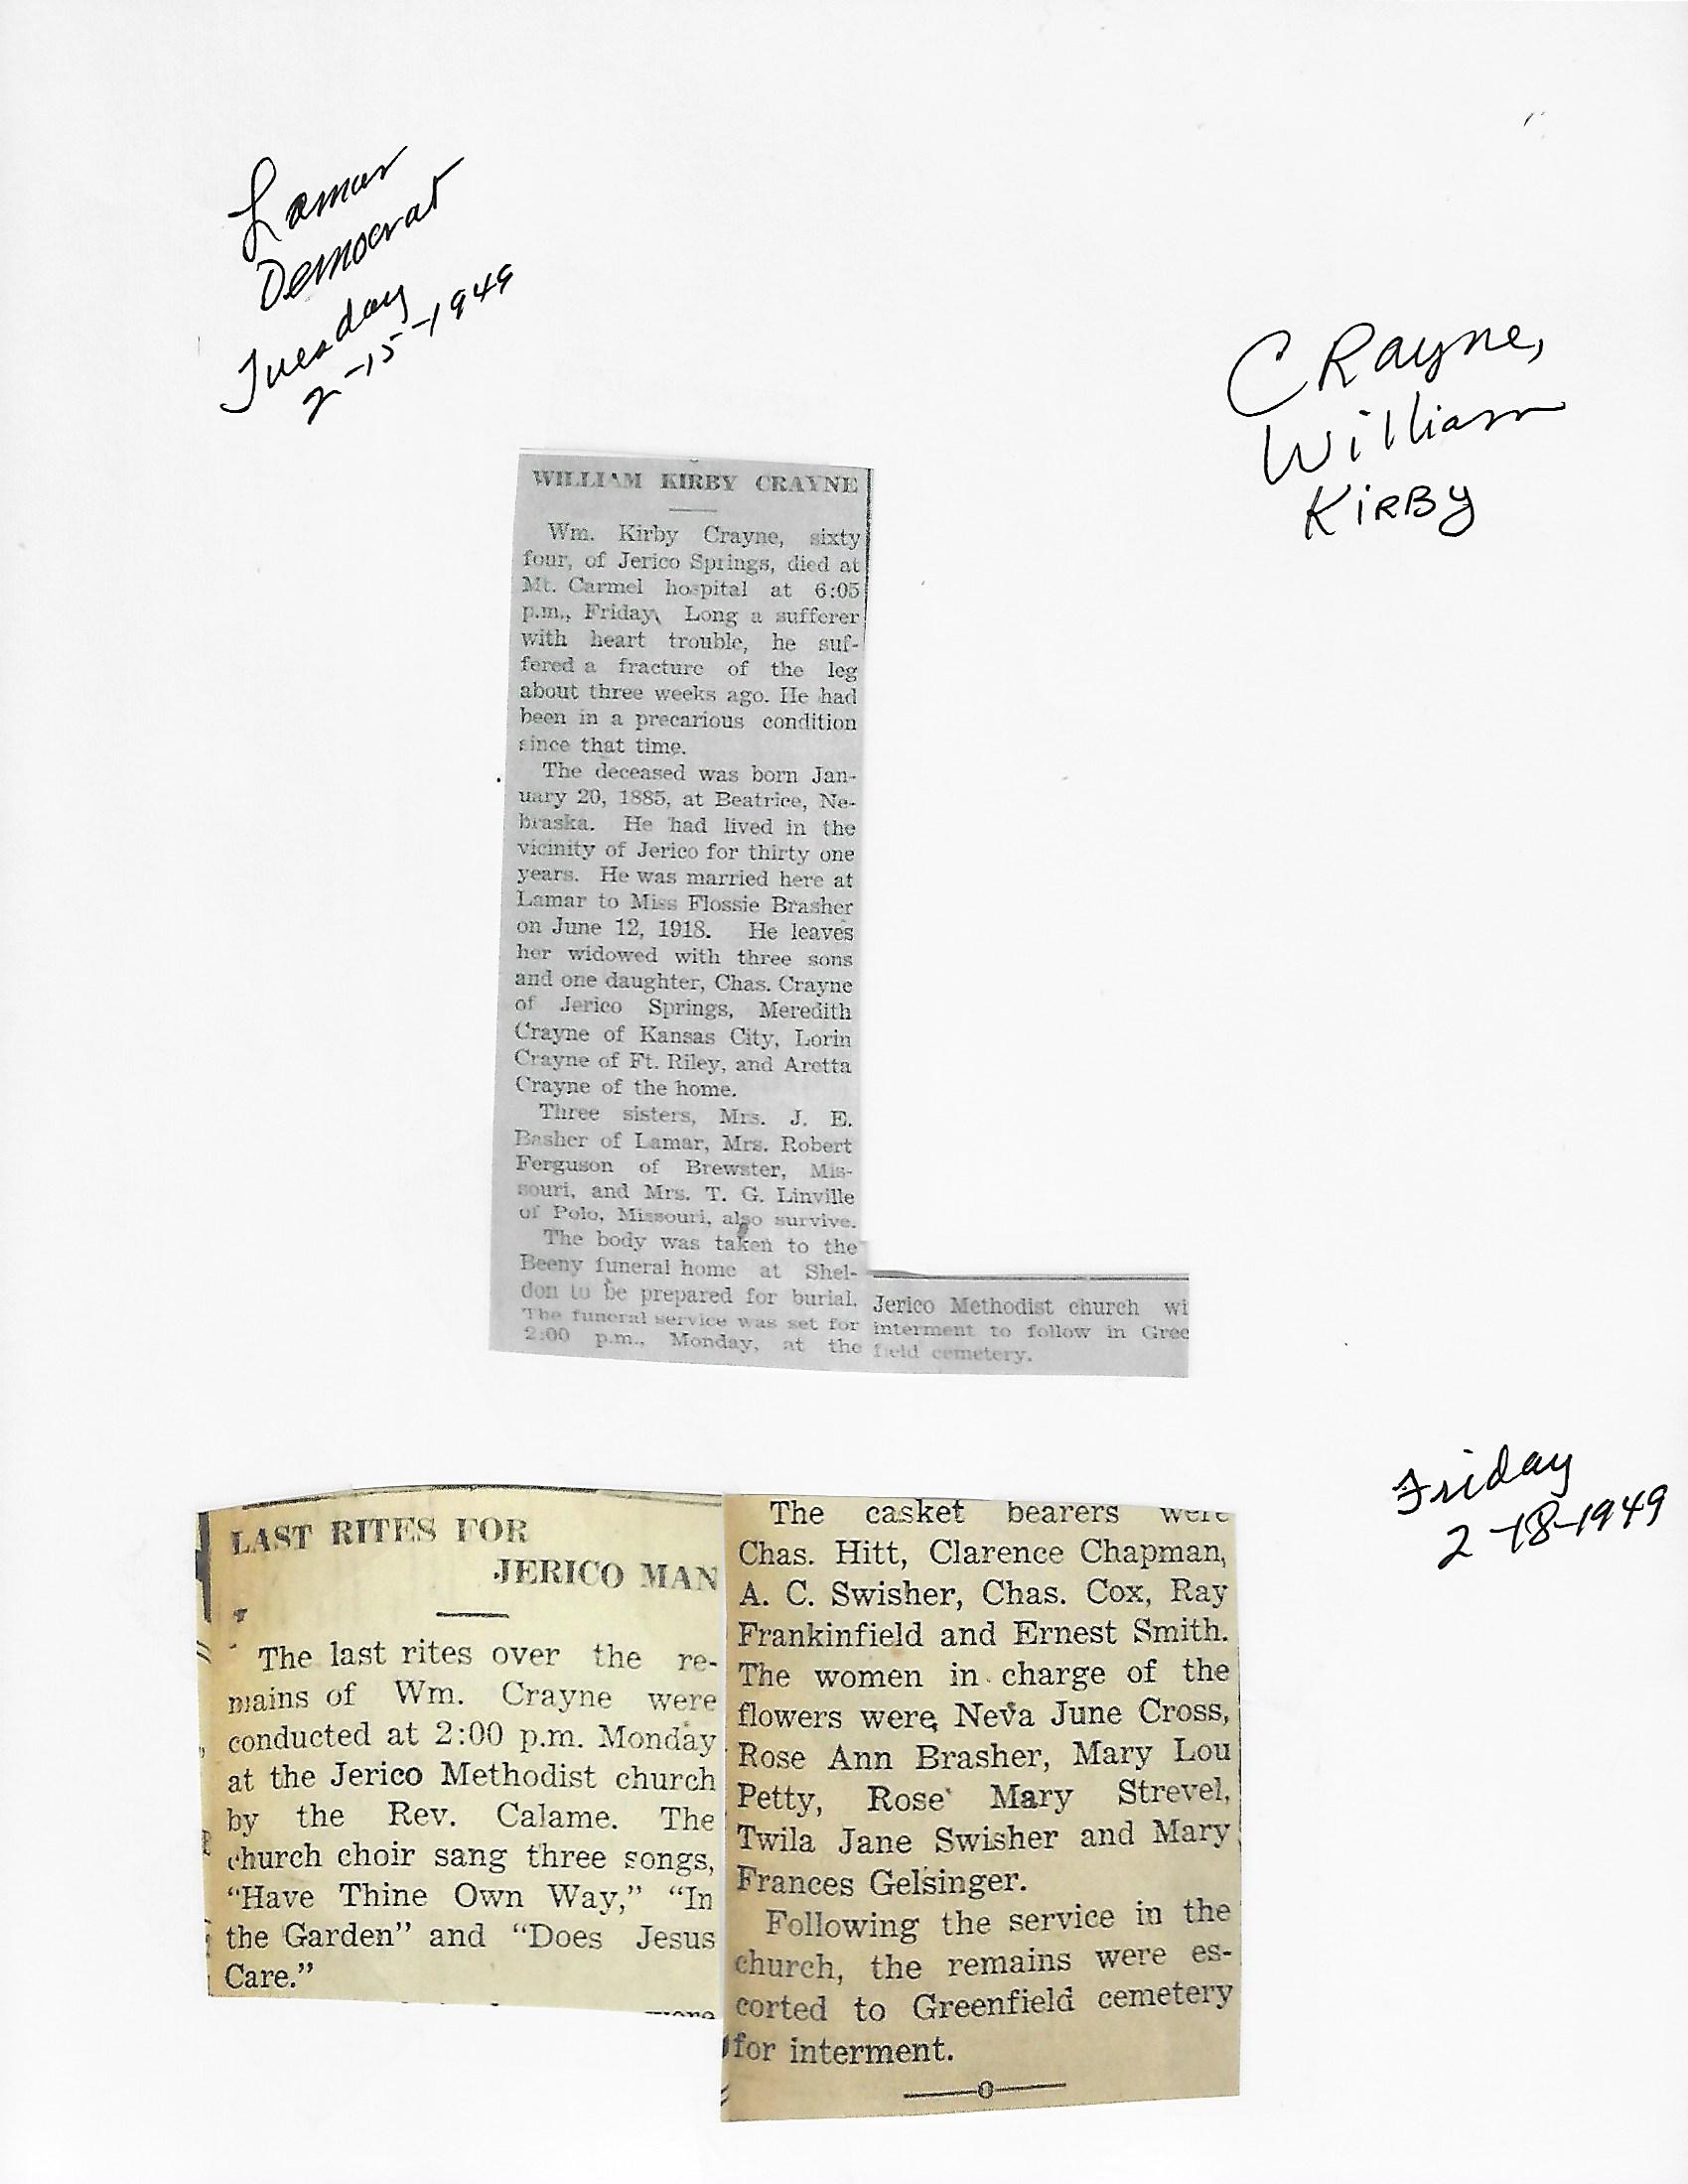 Lamar
Democrat
Tuesday
2-15-1949
CRayne,
William
KiRBy
WILLIAM KIRBY CRAYNE
Wm. Kirby Crayne, sixty
four, of Jerico Springs, died at
Mt. Carmel hospital at 6:05
p.m., Friday. Long a sufferer
with heart trouble, he suf-
fered a fracture of the leg
about three weeks ago. He had
been in a precarious condition
since that time.
The deceased was born Jan-
uary 20, 1885, at Beatrice, Ne-
braska. He had lived in the
vicinity of Jerico for thirty one
years. He was married here at
Lamar to Miss Flossie Brasher
on June 12, 1918. He leaves
her widowed with three sons
and one daughter, Chas. Crayne
of Jerico Springs, Meredith
Crayne of Kansas City, Lorin
Crayne of Ft. Riley, and Aretta
Crayne of the home.
Three sisters, Mrs. J. E.
Basher of Lamar, Mrs. Robert
Ferguson of Brewster, Mis-
souri, and Mrs. T. G. Linville
of Polo, Missouri, also survive.
The body was taken to the
Beeny funeral home at Shel-
don to be prepared for burial.
The funeral service was set for
2:00 p.m., Monday, at the
Jerico Methodist church wi
interment to follow in Gree
field cemetery.
Friday
2-18-1949
LAST RITES FOR
JERICO MAN
The last rites over the re-
mains of Wm. Crayne were
conducted at 2:00 p.m. Monday
at the Jerico Methodist church
by the Rev. Calame. The
church choir sang three songs,
“Have Thine Own Way,” “In
the Garden” and “Does Jesus
Care.”
The casket bearers were
Chas. Hitt, Clarence Chapman,
A. C. Swisher, Chas. Cox, Ray
Frankinfield and Ernest Smith.
The women in charge of the
flowers were, Neva June Cross,
Rose Ann Brasher, Mary Lou
Petty, Rose Mary Strevel,
Twila Jane Swisher and Mary
Frances Gelsinger.
Following the service in the
church, the remains were es-
corted to Greenfield cemetery
for interment.